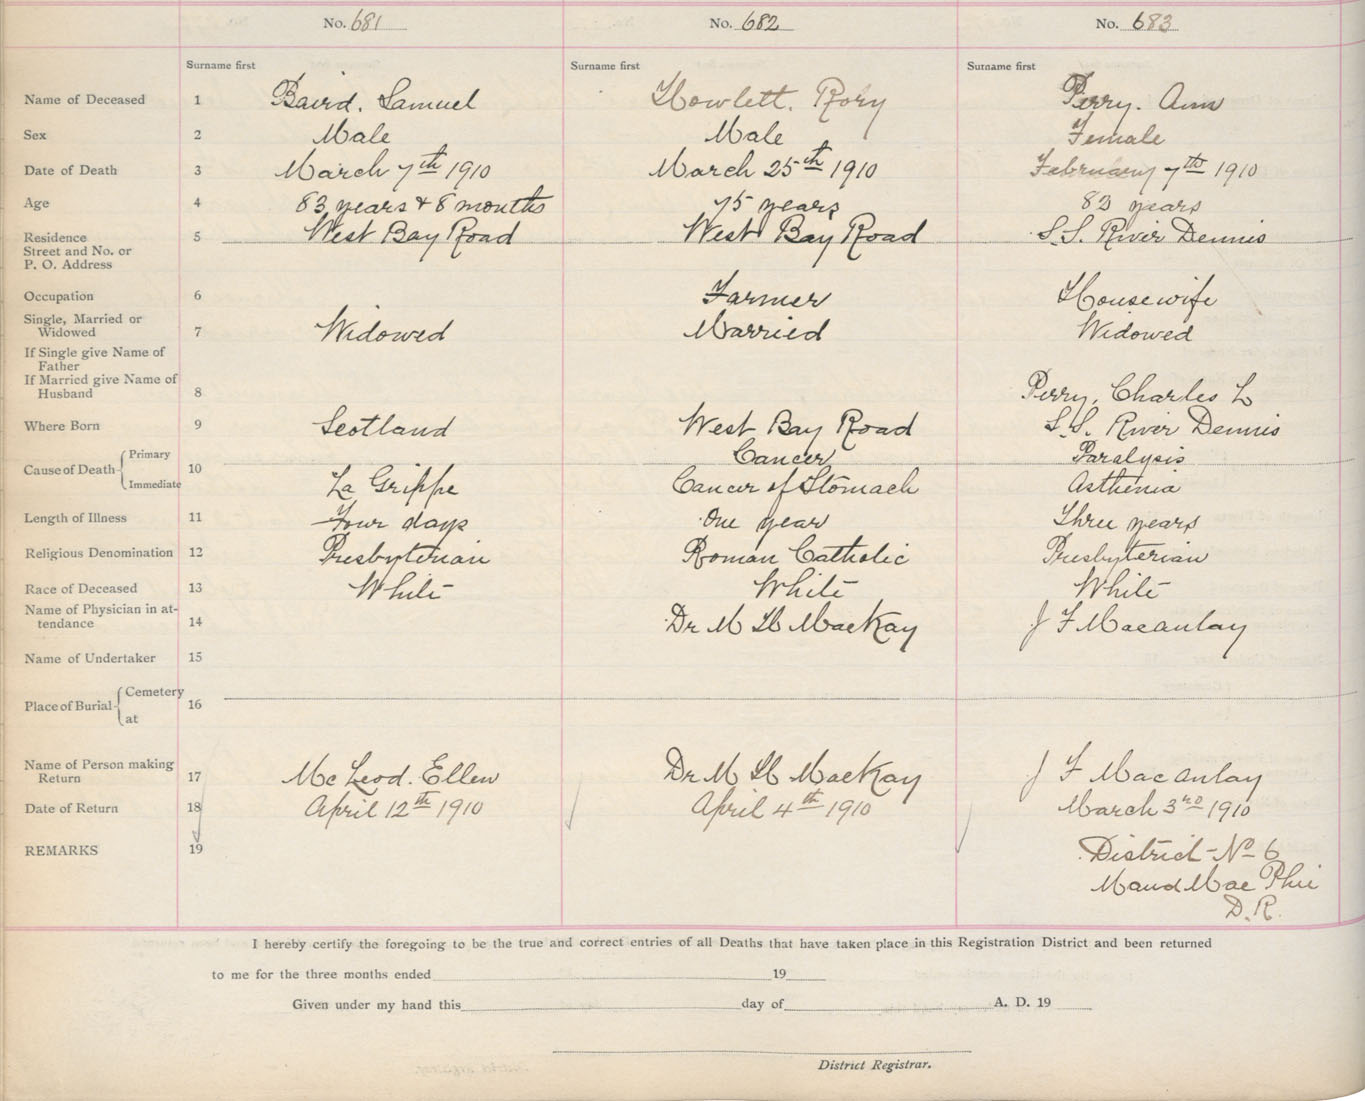 No. 681 No. 682 No. 683
Surname first Surname first Surname first
Name of Deceased 1 Baird. Samuel Howlett. Rory Perry. Ann
Sex 2 Male Male Female
Date of Death 3 March 7th 1910 March 25th 1910 February 7th 1910
Age 4 83 years & 8 months 75 years 82 years
Residence 5 West Bay Road West Bay Road S.S. River Dennis
Street and No. or
P. O. Address
Occupation 6 Farmer Housewife
Single, Married or
Widowed 7 Widowed Married Widowed
If Single give Name of
Father
If Married give Name of
Husband 8 Perry, Charles L
Where Born 9 Scotland West Bay Road S.S. River Dennis
Primary Cancer Paralysis
Cause of Death 10
Immediate La Grippe Cancer of Stomach Asthenia
Length of Illness 11 Four days One year Three years
Religious Denomination 12 Presbyterian Roman Catholic Presbyterian
Race of Deceased 13 White White White
Name of Physician in at-
tendance 14 Dr M H MacKay J F Macaulay
Name of Undertaker 15
Cemetery
Place of Burial 16
at
Name of Person making
Return 17 McLeod. Ellen Dr M H MacKay J F Macaulay
Date of Return 18 April 12th 1910 April 4th 1910 March 3rd 1910
REMARKS 19 District No 6
Maud Mac Phie
D.R.
I hereby certify the foregoing to be the true and correct entries of all Deaths that have taken place in this Registration District and been returned
to me for the three months ended 19
Given under my hand this day of A. D. 19
District Registrar.